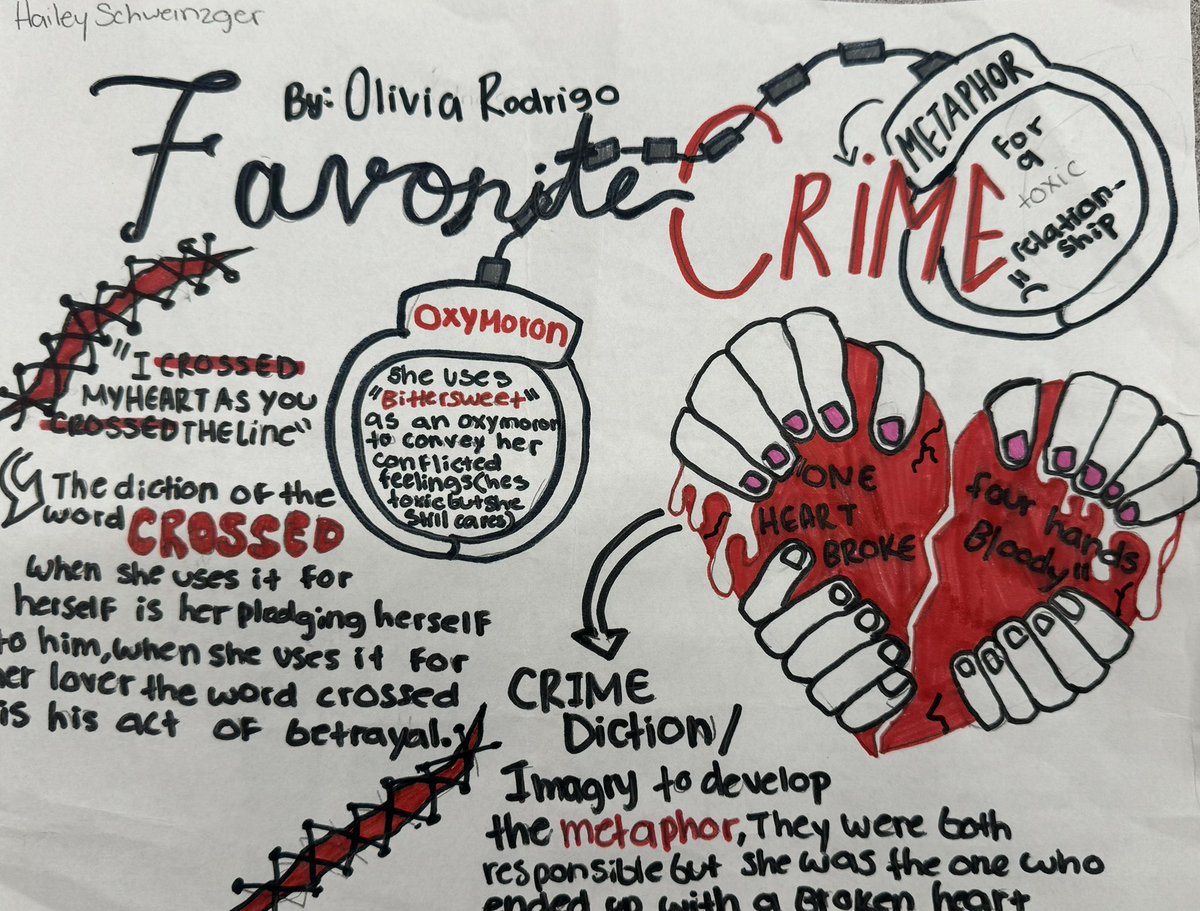 Hailey Schweinzger
Favorite
By: Olivia Rodrigo
CRiME
METAPHOR
For
a
toxic
relation-
ship
OXYMORON
She uses
"Bittersweet"
as an oxymoron
to convey her
conflicted
feelings(hes
toxic but she
still cares)
"I CROSSED
MY HEART AS YOU
CROSSED THE LiNE"
The diction of the
word CROSSED
when she uses it for
herself is her pledging herself
to him, when she uses it for
her lover the word crossed
is his act of betrayal.
"ONE
HEART
BROKE
four hands
Bloody"
CRIME
Diction/
Imagry to develop
the metaphor, They were both
responsible but she was the one who
ended up with a Broken heart